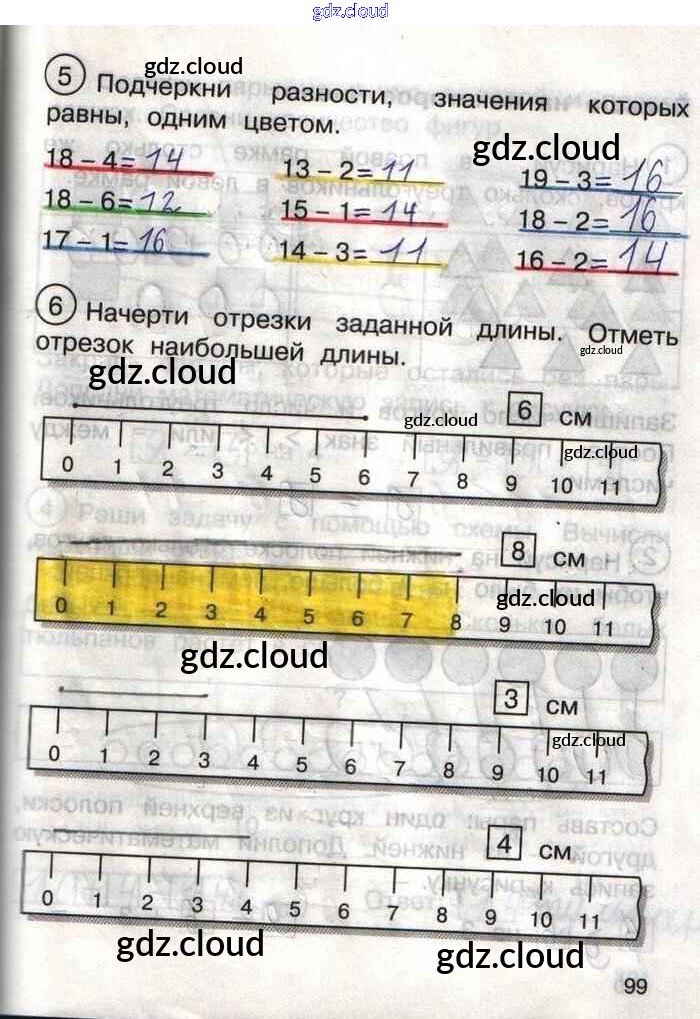 gdz.cloud
gdz.cloud
5 Подчеркни разности, значения которых
равны, одним цветом.
gdz.cloud
18 – 4= 14
13 – 2= 11
19 – 3= 16
18 – 6= 12
15 – 1= 14
18 – 2= 16
17 – 1= 16
14 – 3= 11
16 – 2= 14
6 Начерти отрезки заданной длины. Отметь
отрезок наибольшей длины.
gdz.cloud
gdz.cloud
6 см
gdz.cloud
gdz.cloud
0 1 2 3 4 5 6 7 8 9 10 11
8 см
gdz.cloud
0 1 2 3 4 5 6 7 8 9 10 11
gdz.cloud
3 см
gdz.cloud
0 1 2 3 4 5 6 7 8 9 10 11
4 см
0 1 2 3 4 5 6 7 8 9 10 11
gdz.cloud
gdz.cloud
99